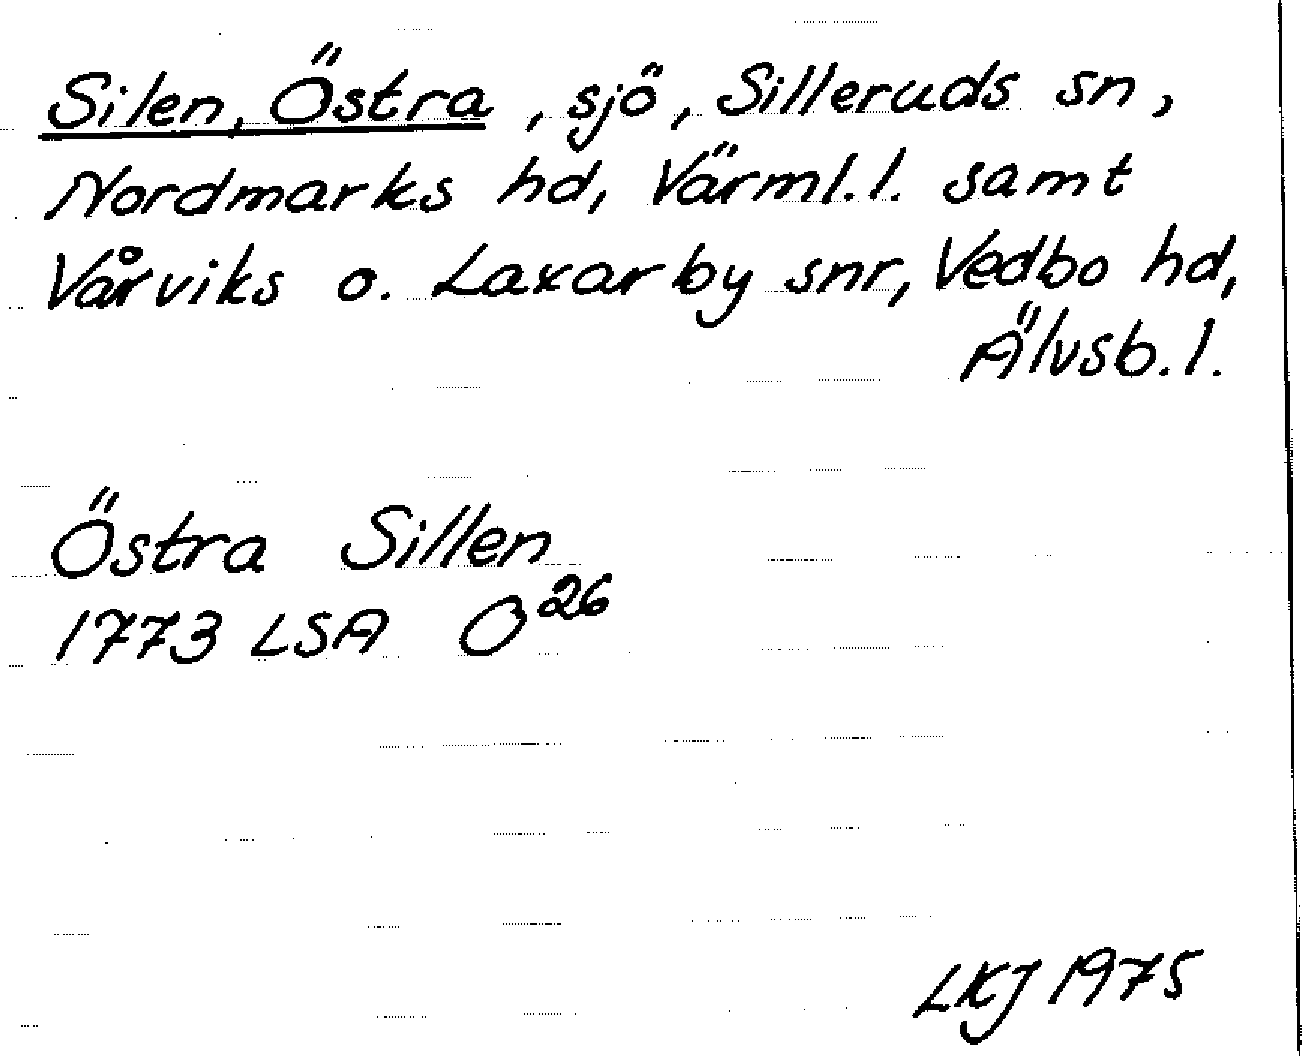 Silen, Östra, sjö, Silleruds sn,
Nordmarks hd, Värml.l. samt
Vårviks o. Laxarby snr, Vedbo hd,
Älvsb.l.
Östra Sillen
1773 LSA O26
LKJ 1975